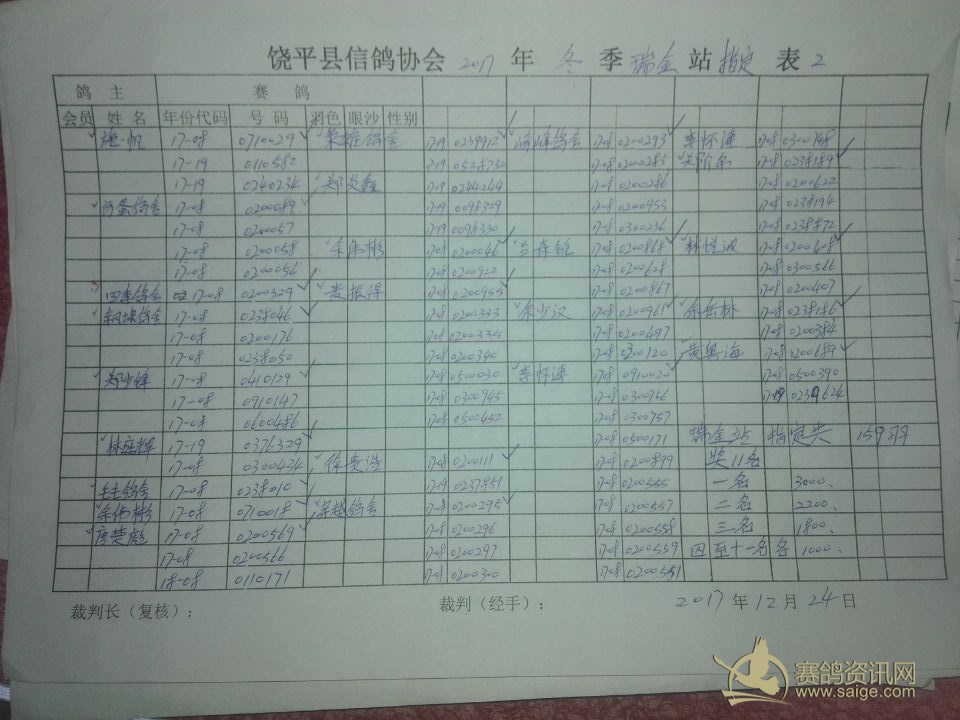 饶平县信鸽协会 2017 年 冬 季 瑞金 站 指定 表 2
鸽 主 赛 鸽
会员 姓 名 年份代码 号 码 羽色 眼沙 性别
17-08 0710029 鸽舍 17-19 0239912 鸽舍 17-08 0200293 李怀涛 17-08 0300168
17-19 0110582 17-19 0528732 17-08 0200285 17-08 0238189
17-19 0240234 郑炎鑫 17-19 0244264 17-08 0200286 17-08 0200622
鸽舍 17-08 0200089 17-19 0098329 17-08 0200953 17-08 0238194
17-08 0200057 17-19 0098330 17-08 0300236 17-08 0238872
17-08 0200058 余伟彬 17-08 0200046 17-08 0200868 林悦波 17-08 0200608
17-08 0200056 17-08 0200922 17-08 0200628 17-08 0300566
四季鸽舍 17-08 0200329 麦振得 17-08 0200955 17-08 0200867 17-08 0200407
鸽舍 17-08 0238046 17-08 0200333 余少汉 17-08 0200961 余岳林 17-08 0238186
17-08 0200176 17-08 0200335 17-08 0200497 17-08 0200384
17-08 0238050 17-08 0200340 17-08 0200120 黄粤海 17-08 0200689
郑少锋 17-08 0410129 17-08 0500030 李怀涛 17-08 0910020 17-08 0500390
17-08 0910147 17-08 0300945 17-08 0300766 0239624
17-08 0600486 17-08 0500452 17-08 0300757
17-19 0376329 17-08 0500171 瑞金站 指定共 159羽
17-08 0300434 徐贵浩 17-08 0200111 17-08 0200899 奖11名
鸽舍 17-08 0238010 17-19 0237851 17-08 0200555 一名 3000.
余伟彬 17-08 0710018 鸽舍 17-08 0200295 17-08 0200557 二名 2200.
唐楚彪 17-08 0200569 17-08 0200296 17-08 0200558 三名 1800.
17-08 0200566 17-08 0200297 17-08 0200559 四至十一名各 1000.
18-08 0110171 17-08 0200300 17-08 0200551
裁判长（复核）： 裁判（经手）： 2017 年 12 月 24 日
赛鸽资讯网
www.saige.com